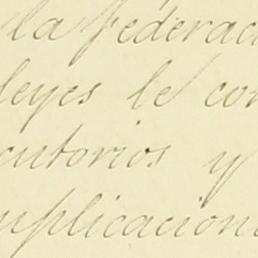 la federac
leyes le con
cutorios y
uplicacion